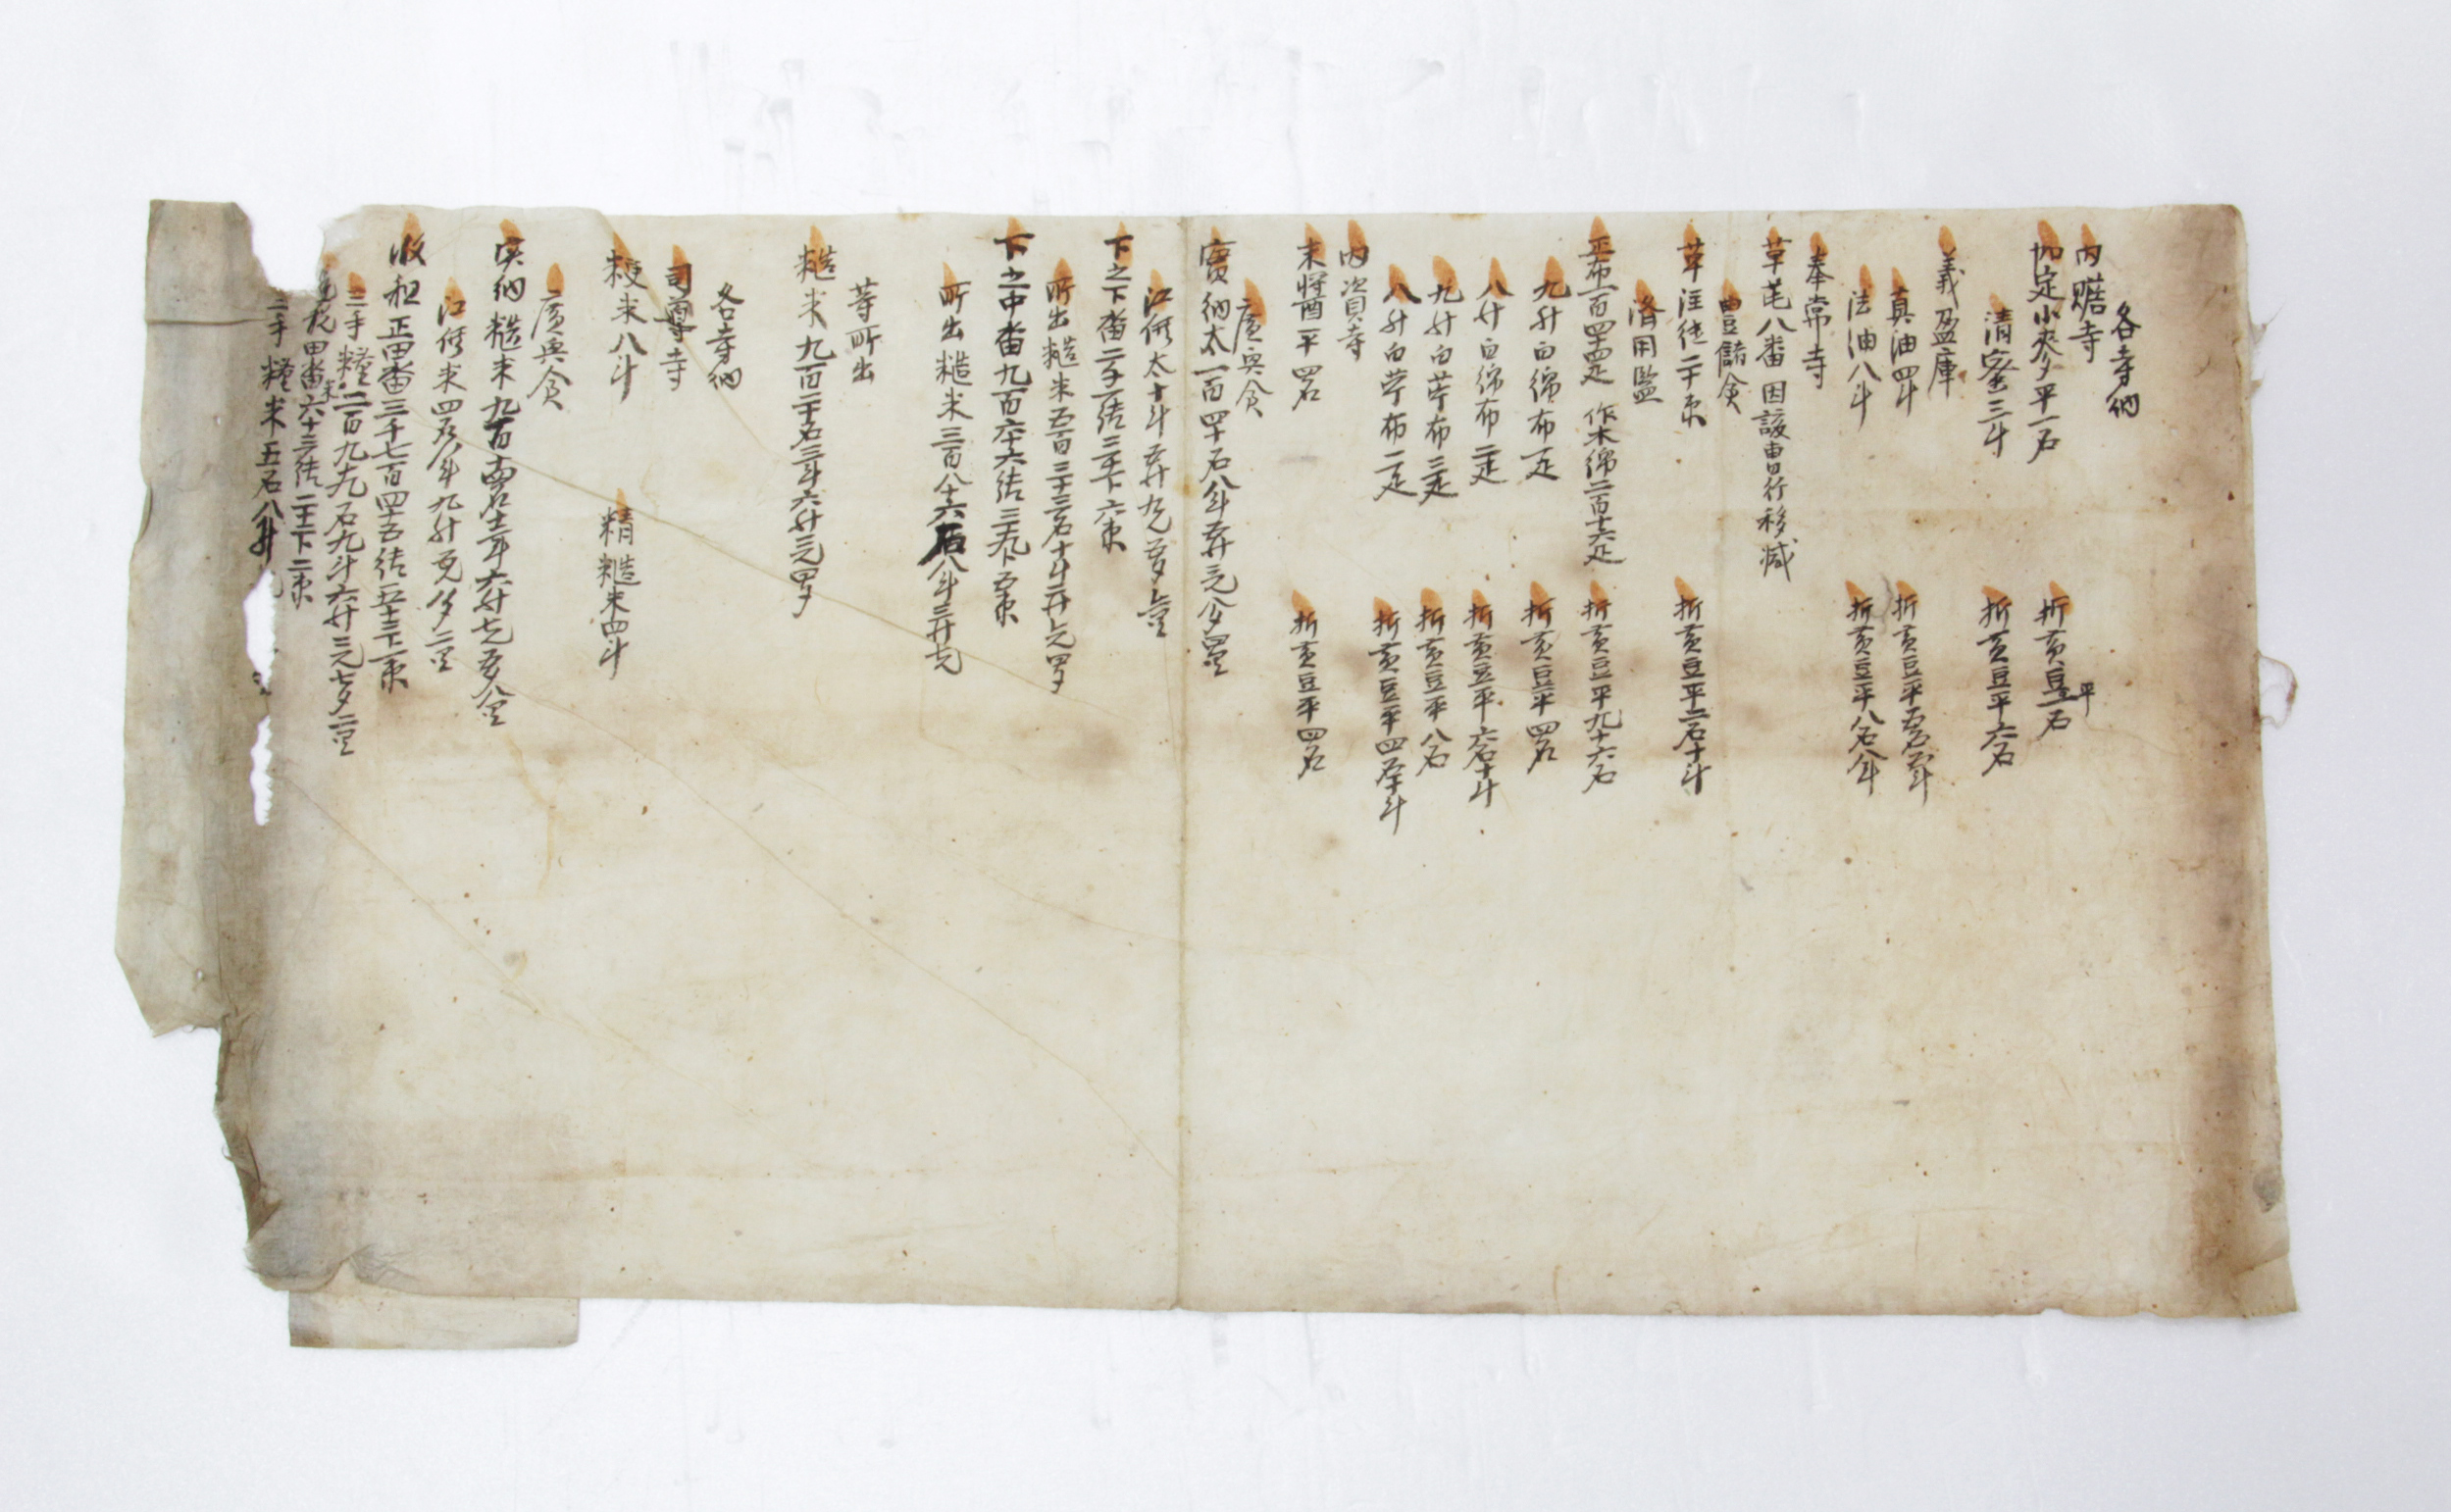 各寺納
內贍寺
加定小麥 平一石 折黃豆平一石
淸蜜三斗 折黃豆平六石
義盈庫
眞油四斗 折黃豆平五石五斗
法油八斗 折黃豆平八石八斗
奉常寺
草芚八番 因該曹行移減
豊儲倉
草注紙二十束 折黃豆平二石十斗
濟用監
正布一百四十四疋 作木綿二百十六疋 折黃豆平九十六石
九升白綿布一疋 折黃豆平四石
八升白綿布二疋 折黃豆平六石十斗
九升白苧布三疋 折黃豆平八石
八升白苧布二疋 折黃豆平四石十斗
內資寺
末醬平四石 折黃豆平四石
廣興倉
實納太一百四十石八斗五升三合八夕四里
江價太十斗五升九合五夕七里
下之下畓二千一結三十下六束
所出糙米五百三十三石十斗二升七合四夕
下之中畓九百六十六結三十九卜五束
所出糙米三百八十六石八斗三升七合
等所出
糙米九百二十石三斗六升三合四夕
各寺納
司䆃寺
粳米八斗 精糙米四斗
廣興倉
實納糙米九百 石十二斗六升七合五夕八里
江價米四石八斗九升 合 夕二里
收租正田畓三千七百四十五結五十三卜一束
三手粮米二百九十九石九斗六升三合七夕二里
田畓六十三結二十二卜二束
三手粮米五石八升